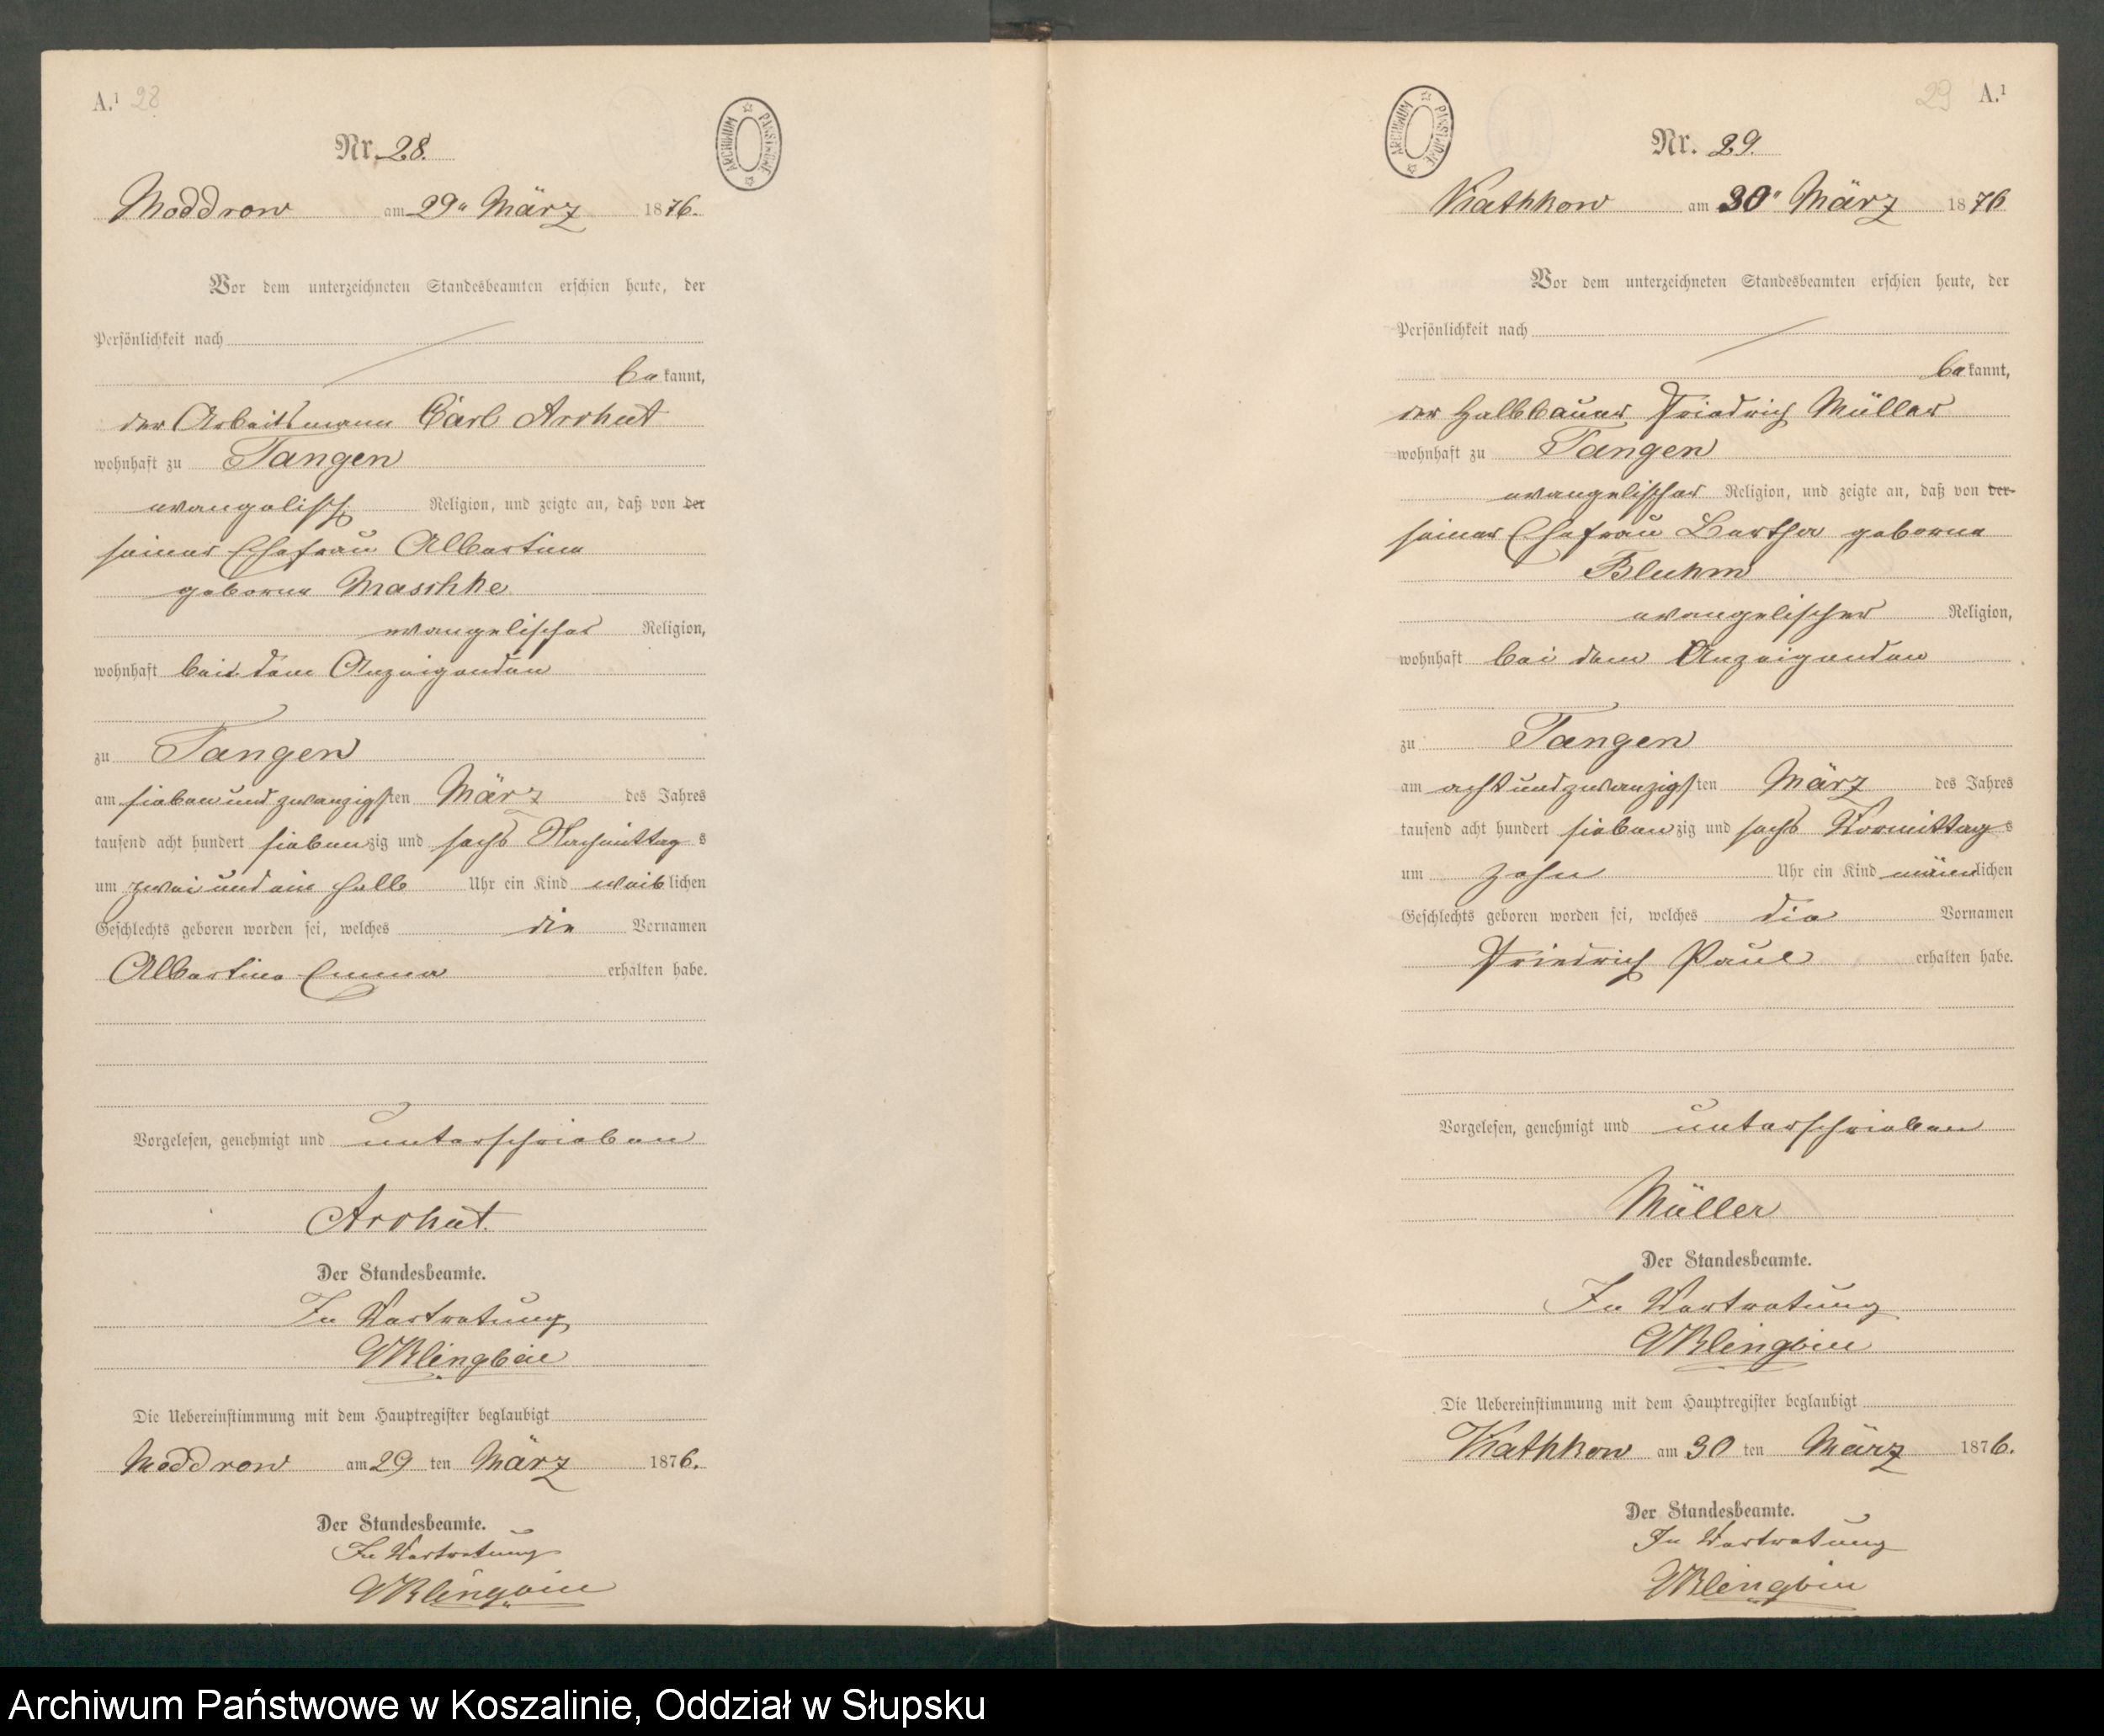 A.¹ 28
ARCHIWUM PAŃSTWOWE
Nr. 28.
Moddrow am 29" März 1876.
Vor dem unterzeichneten Standesbeamten erschien heute, der
Persönlichkeit nach
bekannt,
der Arbeitsmann Carl Arohut
wohnhaft zu Tangen
evangelisch Religion, und zeigte an, daß von der
seiner Ehefrau Albertine
geborne Maschke
evangelischer Religion,
wohnhaft bei dem Anzeigenden
zu Tangen
am sieben und zwanzigsten März des Jahres
tausend acht hundert siebenzig und sechs Nachmittags
um zwei und ein halb Uhr ein Kind weiblichen
Geschlechts geboren worden sei, welches die Vornamen
Albertine Emma erhalten habe.
Vorgelesen, genehmigt und unterschrieben
Arohut.
Der Standesbeamte.
In Vertretung
Klingbeil
Die Uebereinstimmung mit dem Hauptregister beglaubigt
Moddrow am 29 ten März 1876.
Der Standesbeamte.
In Vertretung
Klingbeil
29 A.¹
ARCHIWUM PAŃSTWOWE
Nr. 29.
Kathkow am 30" März 1876
Vor dem unterzeichneten Standesbeamten erschien heute, der
Persönlichkeit nach
bekannt,
der Halbbauer Friedrich Müller
wohnhaft zu Tangen
evangelischer Religion, und zeigte an, daß von der
seiner Ehefrau Bertha geborne
Bluhm
evangelischer Religion,
wohnhaft bei dem Anzeigenden
zu Tangen
am acht und zwanzigsten März des Jahres
tausend acht hundert siebenzig und sechs Vormittags
um zehn Uhr ein Kind männlichen
Geschlechts geboren worden sei, welches die Vornamen
Friedrich Paul erhalten habe.
Vorgelesen, genehmigt und unterschrieben
Müller
Der Standesbeamte.
In Vertretung
Klingbeil
Die Uebereinstimmung mit dem Hauptregister beglaubigt
Kathkow am 30 ten März 1876.
Der Standesbeamte.
In Vertretung
Klingbeil
Archiwum Państwowe w Koszalinie, Oddział w Słupsku